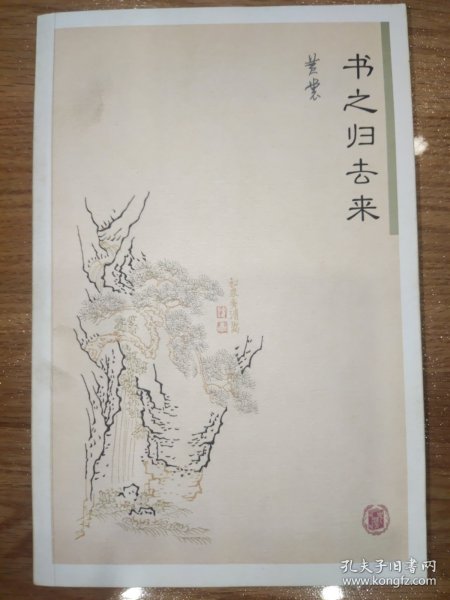 书之归去来
黄裳
孔夫子旧书网
www.kongfz.com